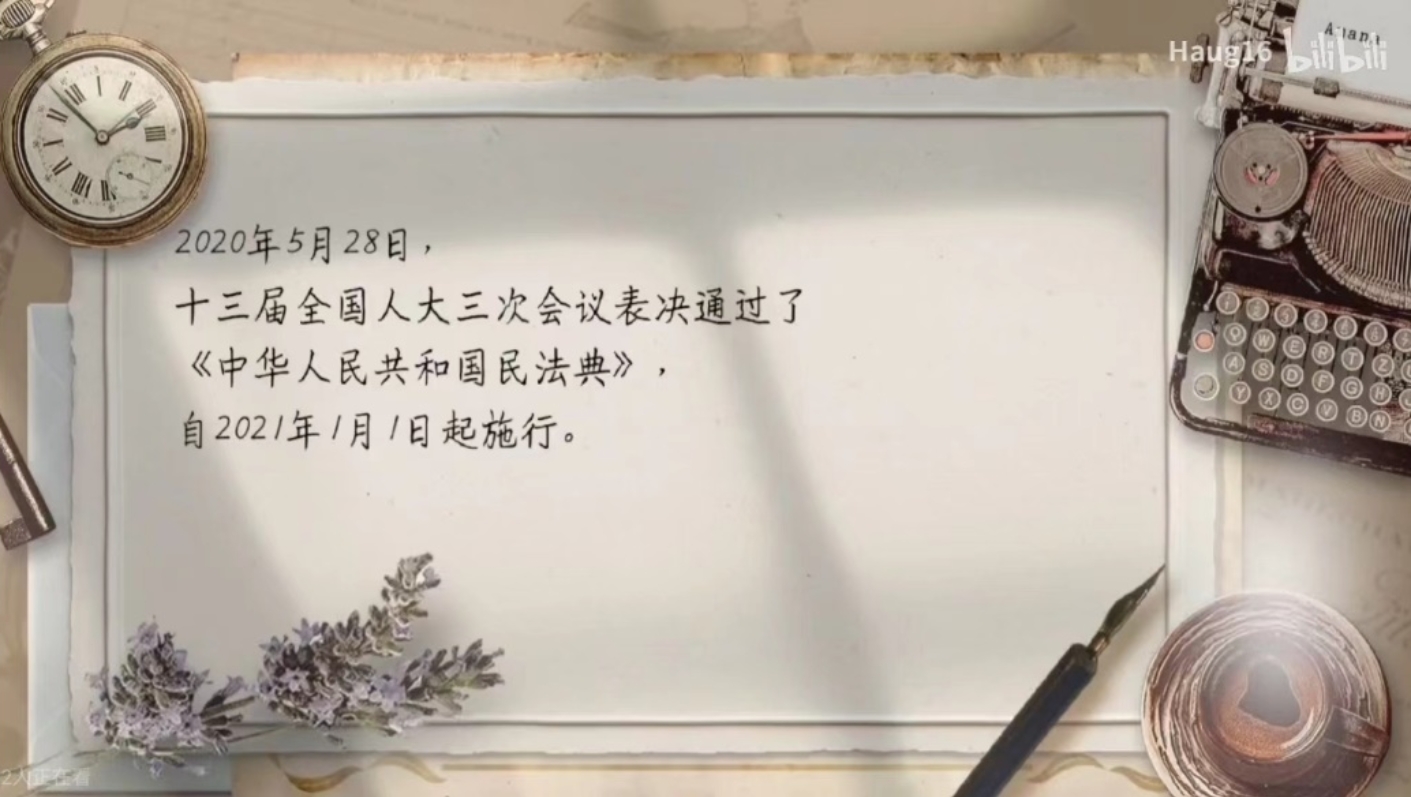 Haug16 bilibili
2020年5月28日，
十三届全国人大三次会议表决通过了
《中华人民共和国民法典》，
自2021年1月1日起施行。
Q W E R T Z
A S D F G H
Y X C V B N
2人正在看